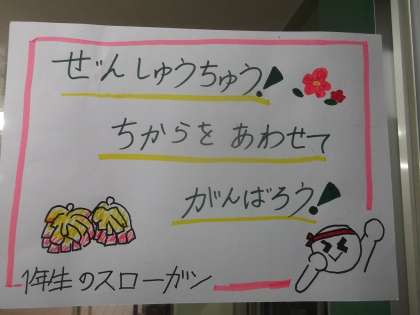 ぜんしゅうちゅう!
ちからを あわせて
がんばろう!
1年生のスローガン